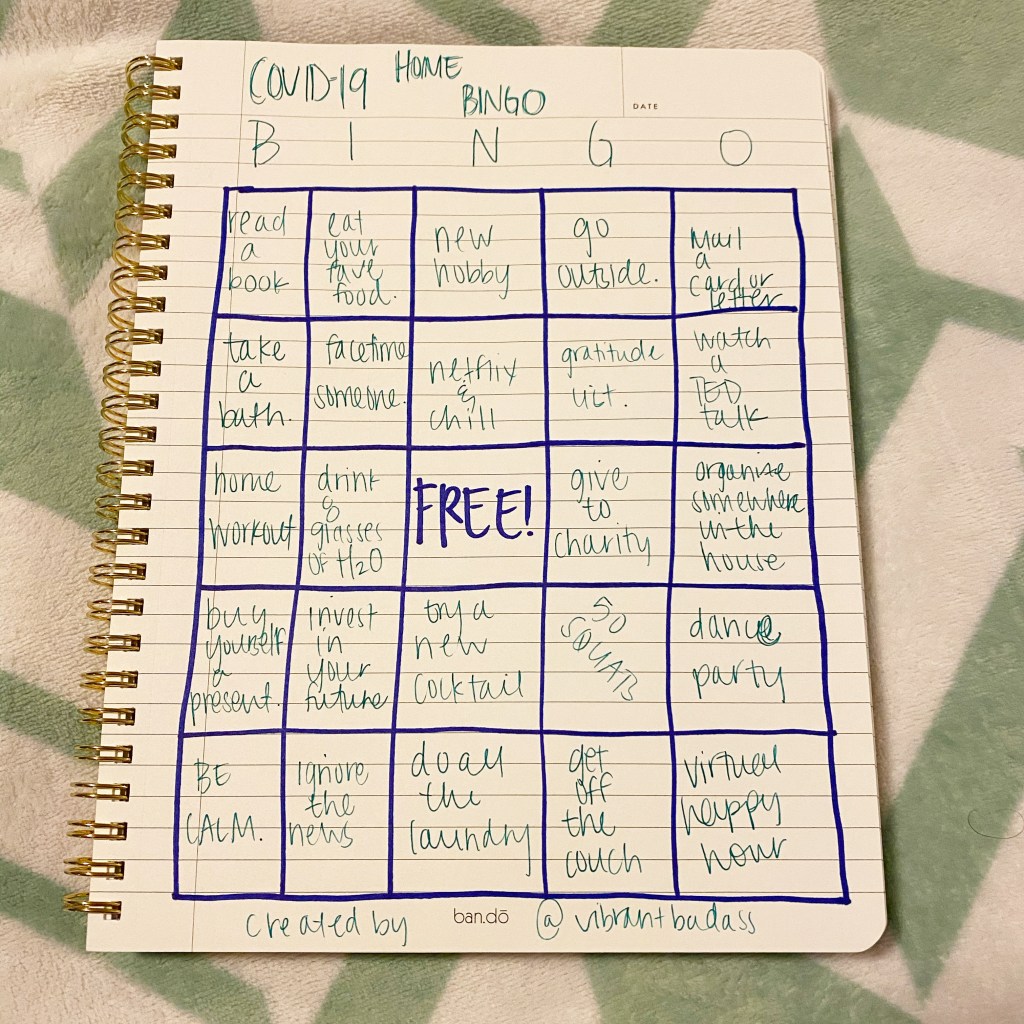 COVID-19 HOME
BINGO
DATE
B I N G O
read
a
book
eat
your
fave
food.
new
hobby
go
outside.
Mail
a
card or
letter
take
a
bath.
facetime
someone.
netflix
&
chill
gratitude
list.
watch
a
TED
talk
home
workout
drink
8
glasses
OF H2O
FREE!
give
to
charity
organize
somewhere
in the
house
buy
yourself
a
present.
invest
in
your
future
try a
new
cocktail
50
SQUATS
dance
party
BE
CALM.
ignore
the
news
do all
the
laundry
get
off
the
couch
virtual
happy
hour
created by ban.dō @vibrantbadass